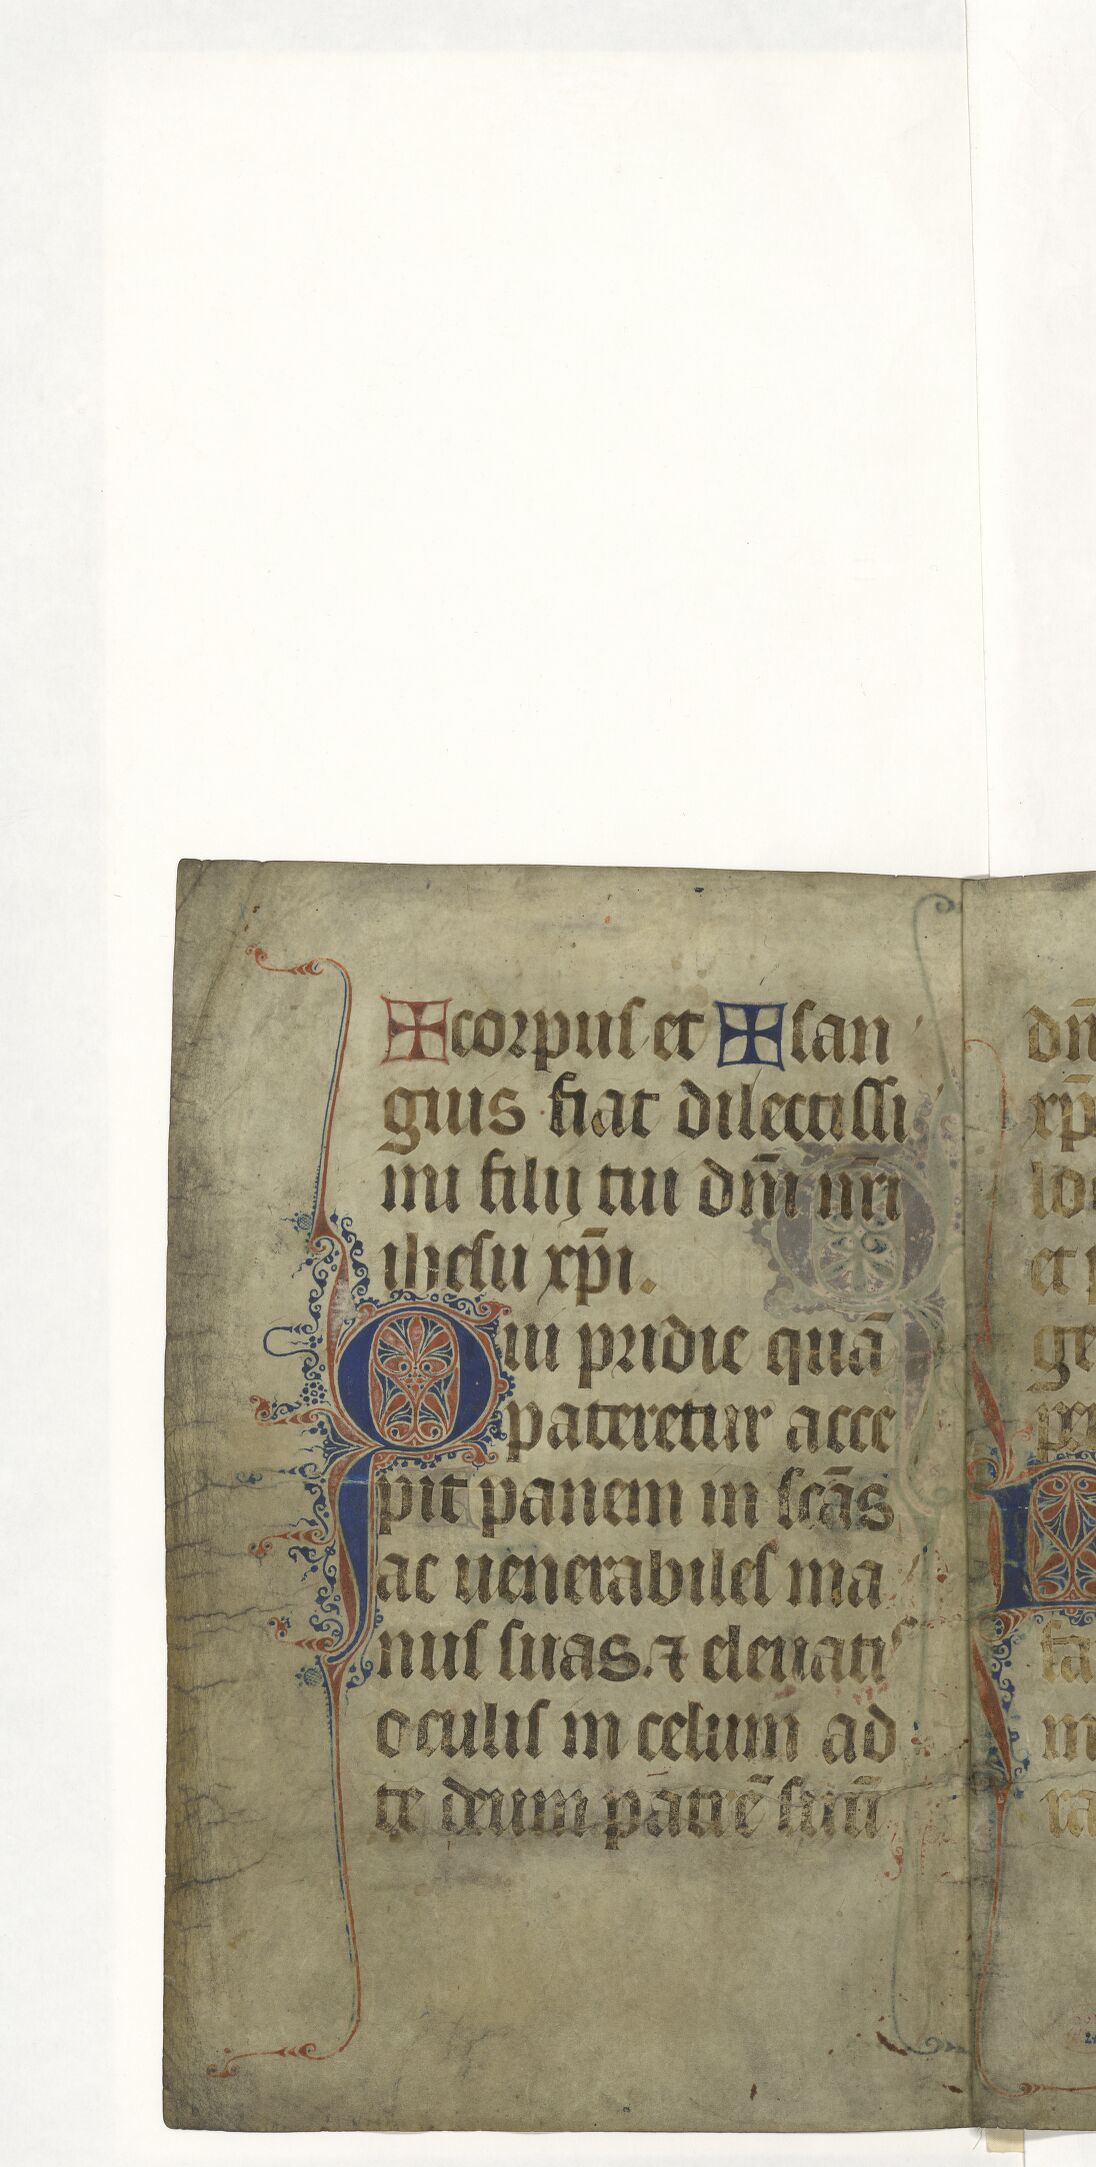 ✠corpus et ✠san
guis fiat dilectissi
mi filij tui dn̄i nr̄i
ihesu xp̄i.
Qui pridie quā
pateretur acce
pit panem in scās
ac uenerabiles ma
nus suas. ⁊ eleuatis
oculis in celum ad
te deum patrē suū
dn̄
xp̄
lo
et p
ge
fa
m
ra